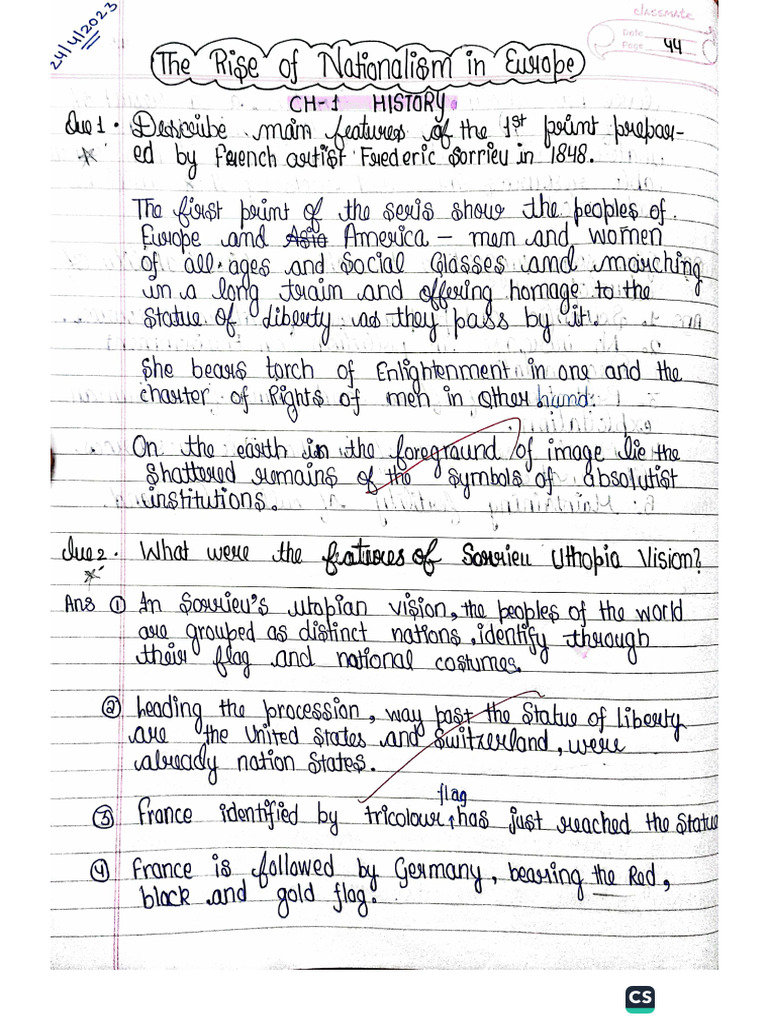 classmate
24/4/2023
Date
Page 44
The Rise of Nationalism in Europe
CH-1 HISTORY.
Que 1. Describe main features of the 1st print prepar-
ed by French artist Frederic Sorrieu in 1848.
The first print of the seris show the peoples of
Europe and Asia America - men and women
of all ages and Social Glasses and marching
in a long train and offering homage to the
Statue of Liberty as they pass by it.
She bears torch of Enlightenment in one and the
charter of Rights of men in other hand.
On the earth in the foreground of image lie the
Shattered remains of the symbols of absolutist
institutions.
Que 2. What were the features of Sorrieu Uthopia Vision?
Ans ① In Sorrieu's utopian vision, the peoples of the world
are grouped as distinct nations, identify through
their flag and national costumes.
② heading the procession, way past the Statue of Liberty
are the United States and Switzerland, were
already nation States.
flag
③ France identified by tricolour, has just reached the Statue
④ France is followed by Germany, bearing the Red,
black and gold flag.
CS